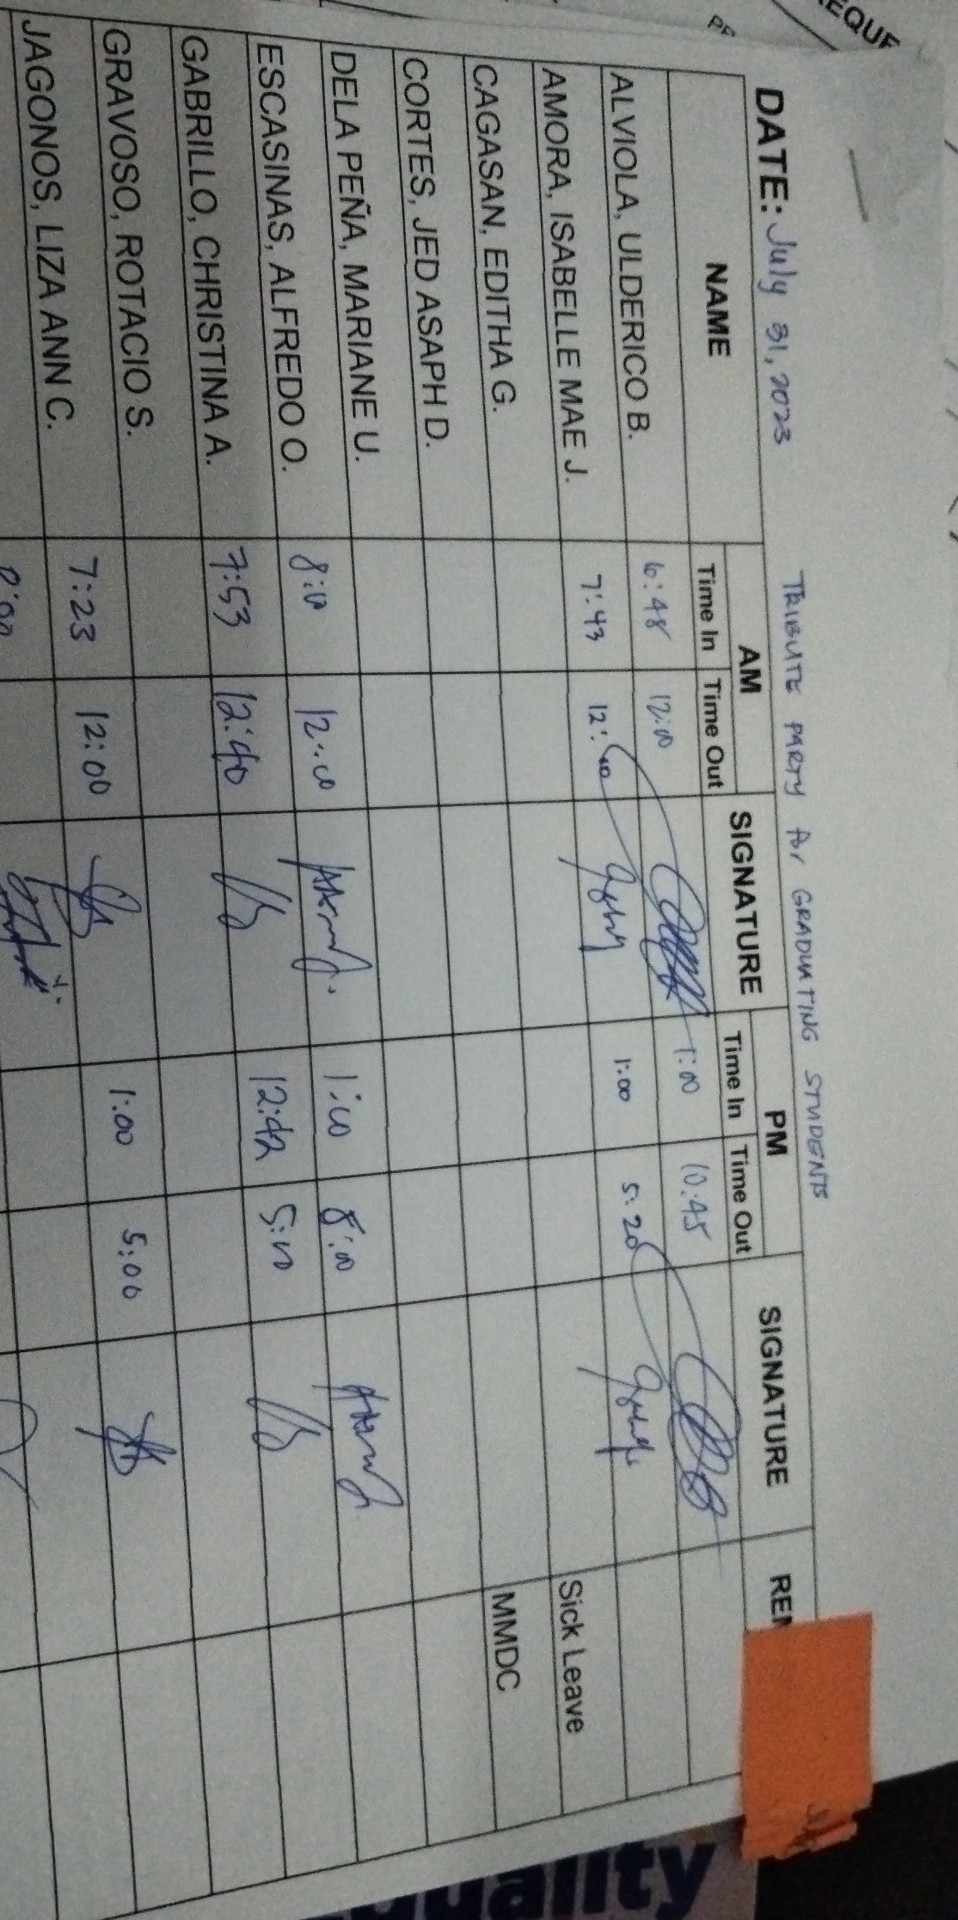 EQUE
DATE: July 31, 2023 TRIBUTE PARTY for GRADUATING STUDENTS
NAME AM SIGNATURE PM SIGNATURE REM
Time In Time Out Time In Time Out
ALVIOLA, ULDERICO B. 6:48 12:00 1:00 10:45
AMORA, ISABELLE MAE J. 7:43 12:00 1:00 5:20
CAGASAN, EDITHA G. Sick Leave
CORTES, JED ASAPH D. MMDC
DELA PEÑA, MARIANE U.
ESCASINAS, ALFREDO O. 8:00 12:00 1:00 8:00
GABRILLO, CHRISTINA A. 7:53 12:40 12:42 5:00
GRAVOSO, ROTACIO S.
JAGONOS, LIZA ANN C. 7:23 12:00 1:00 5:00
uality